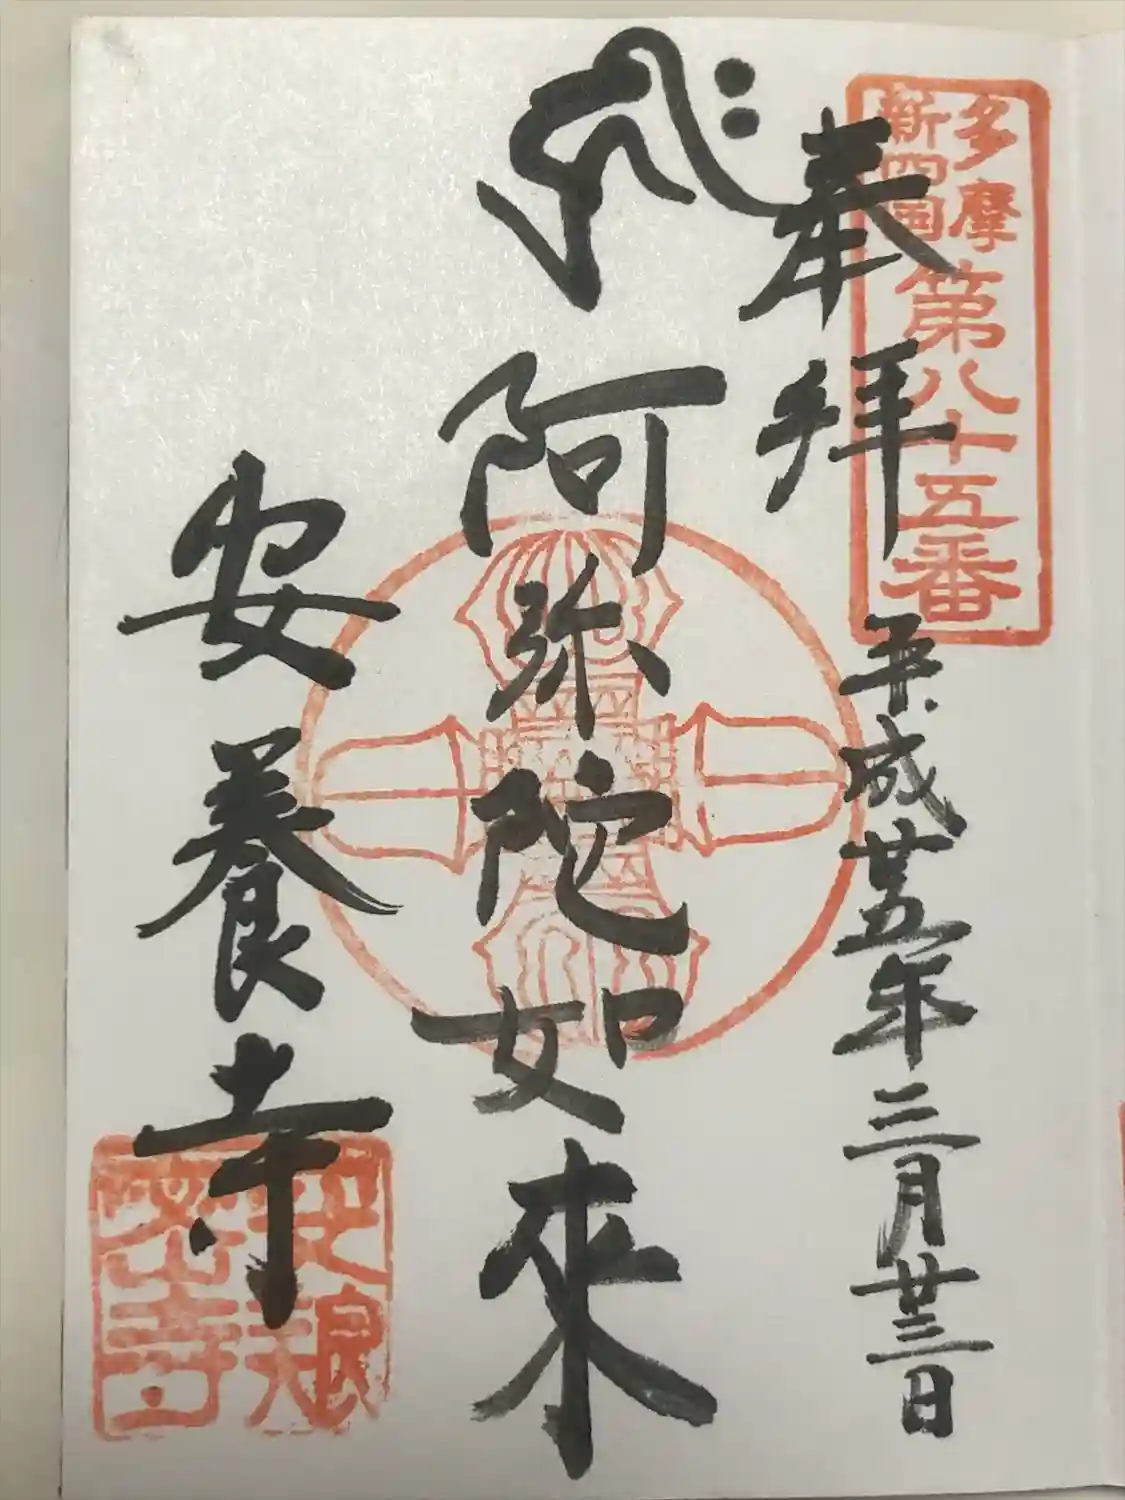 多摩
新四国
第八十五番
奉拝
平成廿五年三月廿三日
阿弥陀如来
安養寺